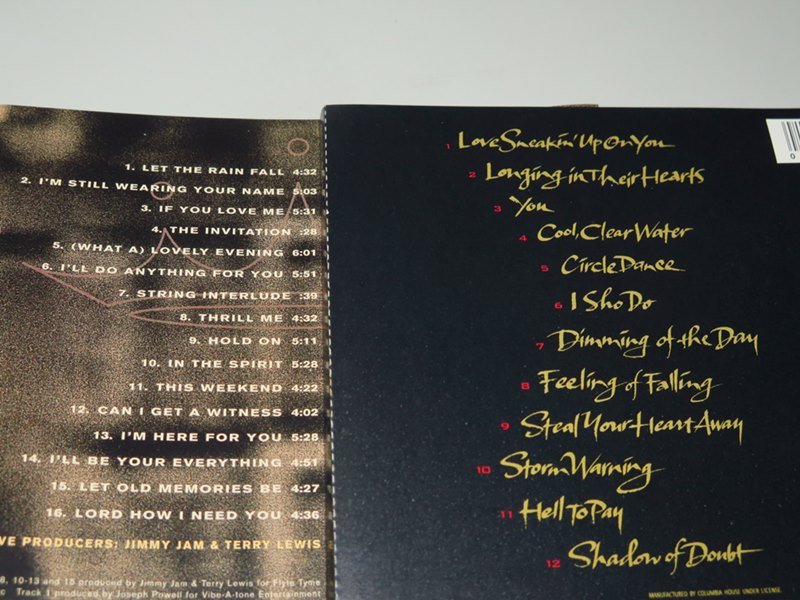 1. LET THE RAIN FALL 4:32
2. I'M STILL WEARING YOUR NAME 5:03
3. IF YOU LOVE ME 5:31
4. THE INVITATION :28
5. (WHAT A) LOVELY EVENING 6:01
6. I'LL DO ANYTHING FOR YOU 5:51
7. STRING INTERLUDE :39
8. THRILL ME 4:32
9. HOLD ON 5:11
10. IN THE SPIRIT 5:28
11. THIS WEEKEND 4:22
12. CAN I GET A WITNESS 4:02
13. I'M HERE FOR YOU 5:28
14. I'LL BE YOUR EVERYTHING 4:51
15. LET OLD MEMORIES BE 4:27
16. LORD HOW I NEED YOU 4:36
VE PRODUCERS: JIMMY JAM & TERRY LEWIS
8, 10-13 and 15 produced by Jimmy Jam & Terry Lewis for Flyte Tyme
c Track 1 produced by Joseph Powell for Vibe-A-tone Entertainment
1 Love Sneakin' Up On You
2 Longing in Their Hearts
3 You
4 Cool, Clear Water
5 Circle Dance
6 I Sho Do
7 Dimming of the Day
8 Feeling of Falling
9 Steal Your Heart Away
10 Storm Warning
11 Hell To Pay
12 Shadow of Doubt
MANUFACTURED BY COLUMBIA HOUSE UNDER LICENSE.
0